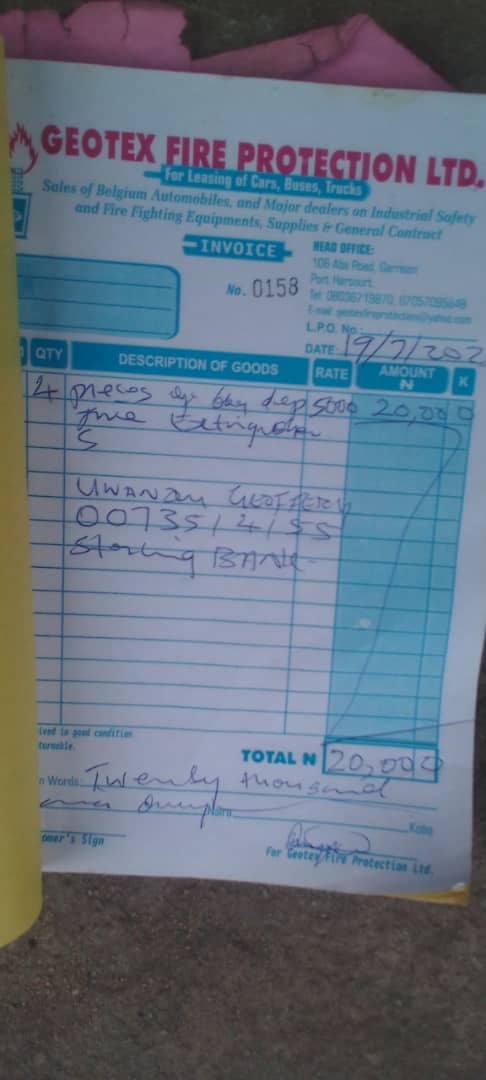 GEOTEX FIRE PROTECTION LTD.
For Leasing of Cars, Buses, Trucks
Sales of Belgium Automobiles, and Major dealers on Industrial Safety
and Fire Fighting Equipments, Supplies & General Contract
INVOICE
HEAD OFFICE:
106 Aba Road, Garrison
Port Harcourt
No. 0158
Tel: 08036719870, 07057095849
E-mail: geotexfireprotection@yahoo.com
L.P.O. No.:
DATE: 19/7/202
QTY DESCRIPTION OF GOODS RATE AMOUNT N K
4 pieces 6kg 5000 20,000
fire
S
UWANDU GEOFFERY
Sterling BANK
ived in good condition
turnable.
TOTAL N 20,000
n Words Twenty thousand
naira only Naira Kobo
omer's Sign
For Geotex Fire Protection Ltd.